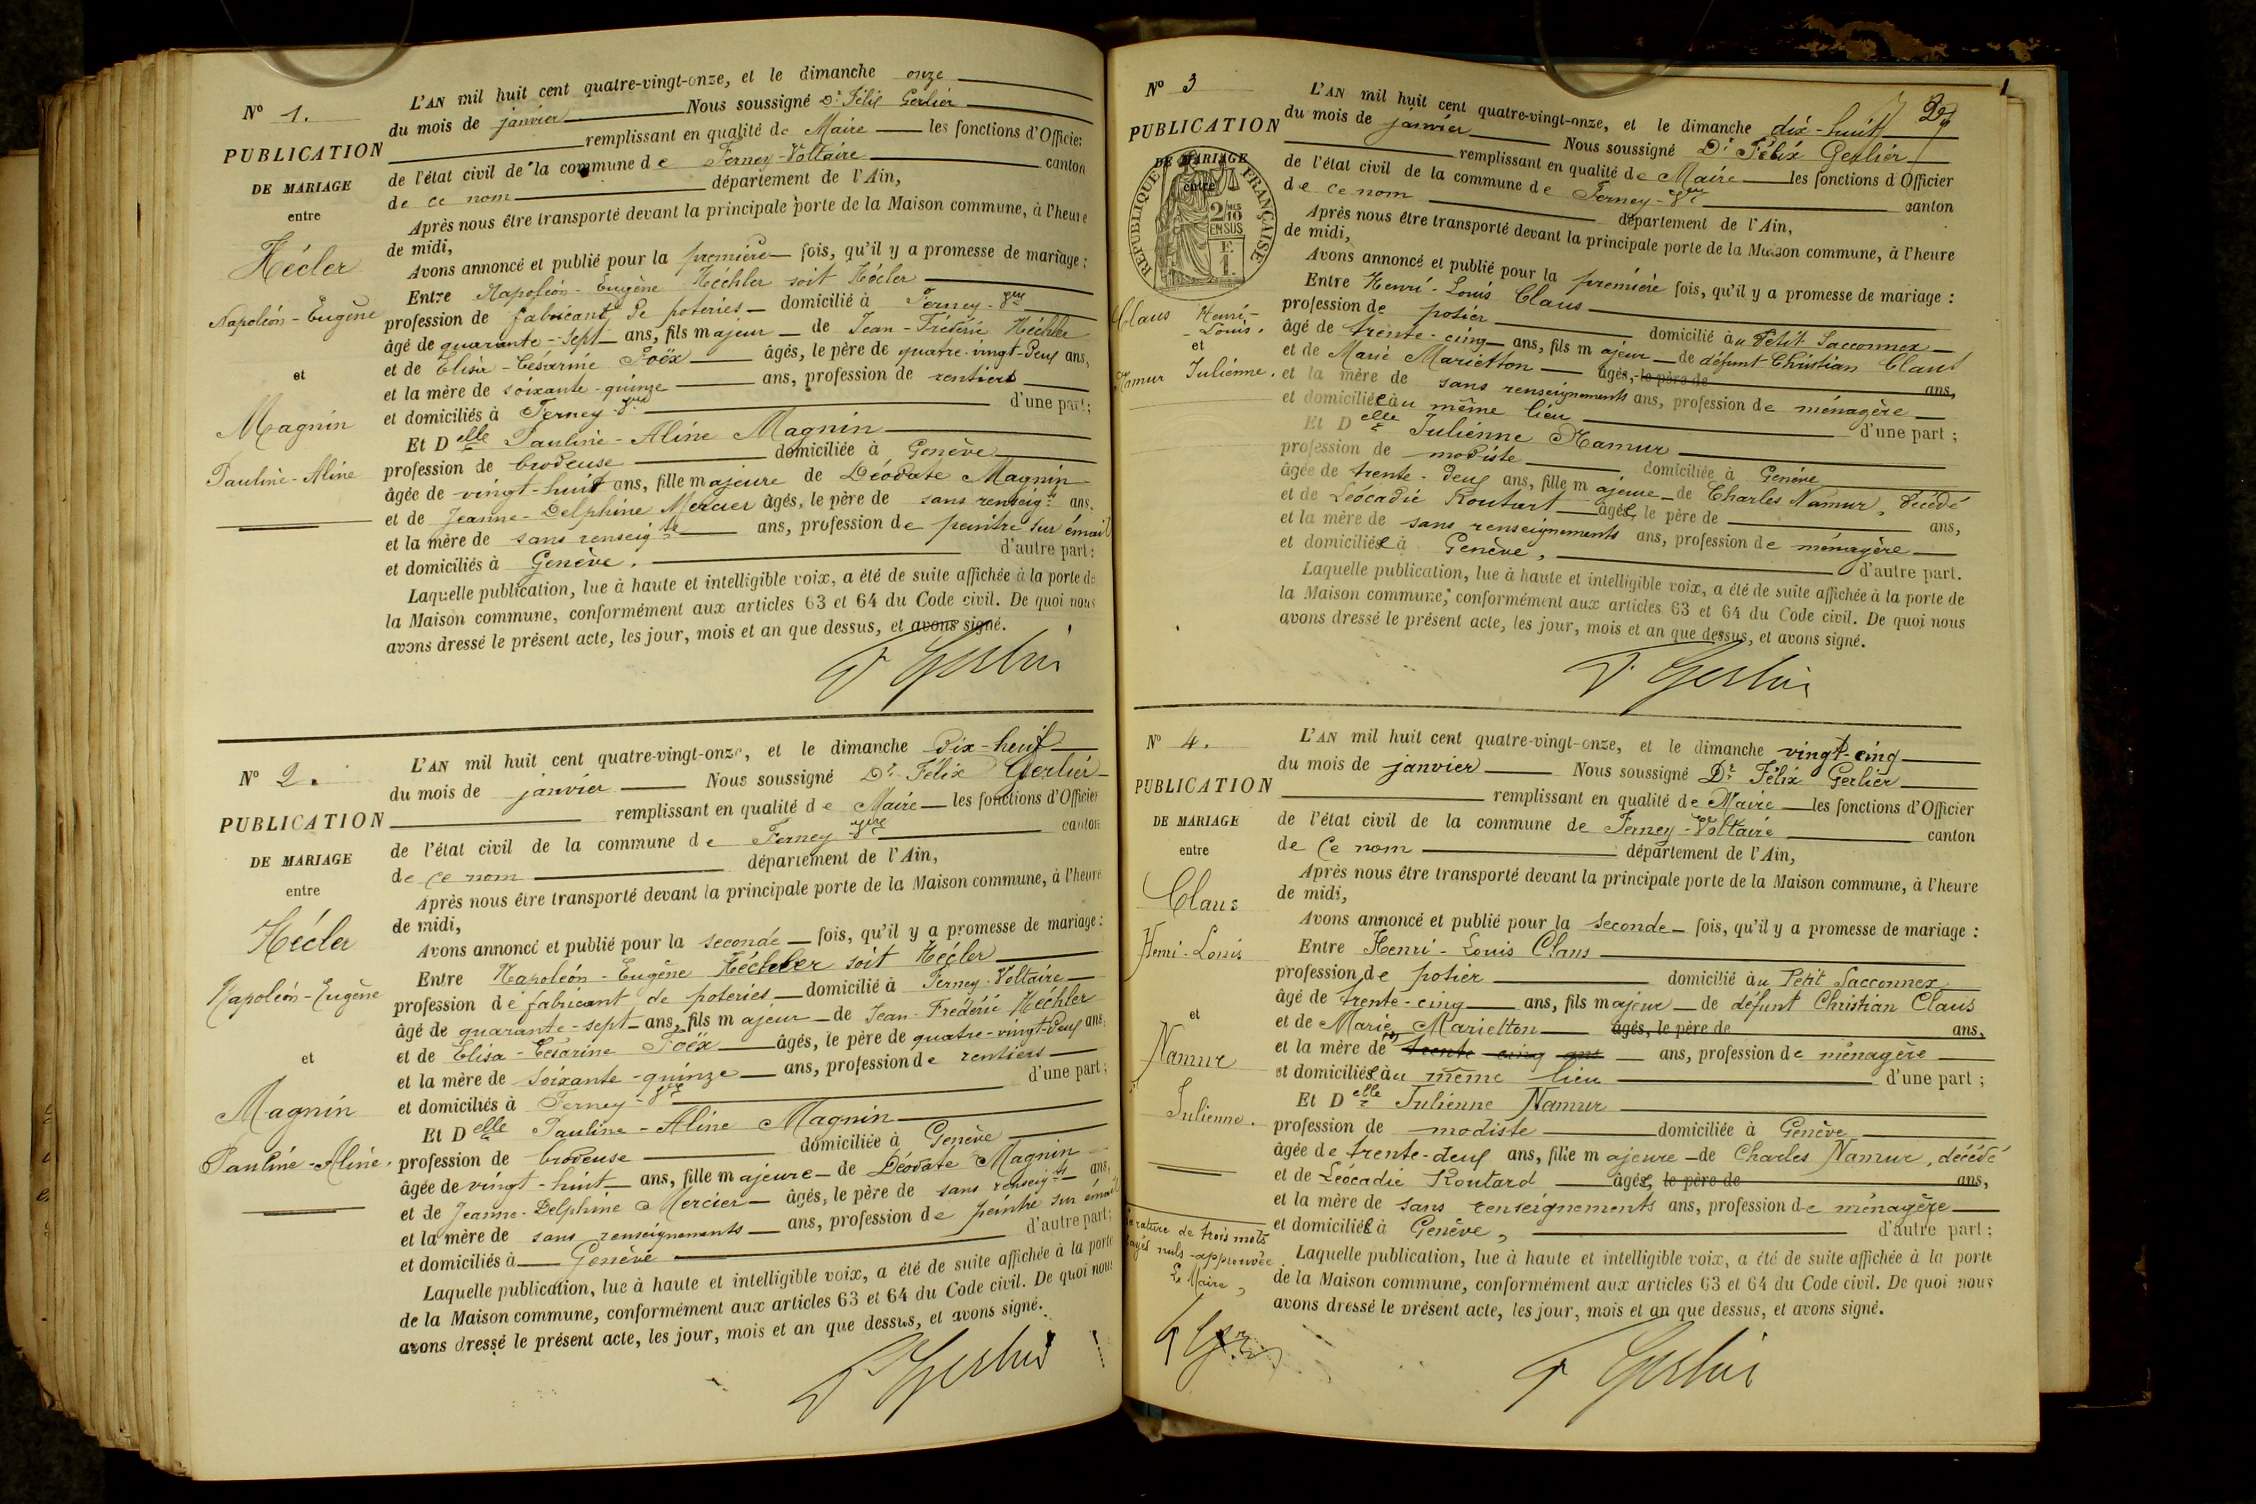 N° 1.
PUBLICATION
DE MARIAGE
entre
Hécler
Napoléon-Eugène
et
Magnin
Pauline-Aline
L'AN mil huit cent quatre-vingt-onze, et le dimanche onze
du mois de janvier Nous soussigné Dr Félix Gerlier
remplissant en qualité de Maire les fonctions d'Officier
de l'état civil de la commune de Ferney-Voltaire canton
de ce nom département de l'Ain,
Après nous être transporté devant la principale porte de la Maison commune, à l'heure
de midi,
Avons annoncé et publié pour la première fois, qu'il y a promesse de mariage :
Entre Napoléon-Eugène Héchler soit Hécler
profession de fabricant de poteries domicilié à Ferney-Vre
âgé de quarante-sept ans, fils majeur de Jean-Frédéric Héchler
et de Elisa-Césarine Foëx âgés, le père de quatre-vingt-deux ans,
et la mère de soixante-quinze ans, profession de rentiers
et domiciliés à Ferney-Vre d'une part ;
Et Delle Pauline-Aline Magnin
profession de brodeuse domiciliée à Genève
âgée de vingt-huit ans, fille majeure de Déodate Magnin
et de Jeanne-Delphine Mercier âgés, le père de sans renseigts ans,
et la mère de sans renseigts ans, profession de peintre sur émail
et domiciliés à Genève. d'autre part :
Laquelle publication, lue à haute et intelligible voix, a été de suite affichée à la porte de
la Maison commune, conformément aux articles 63 et 64 du Code civil. De quoi nous
avons dressé le présent acte, les jour, mois et an que dessus, et avons signé.
Dr Gerlier
N° 2.
PUBLICATION
DE MARIAGE
entre
Hécler
Napoléon-Eugène
et
Magnin
Pauline-Aline.
L'AN mil huit cent quatre-vingt-onze, et le dimanche dix-huit
du mois de janvier Nous soussigné Dr Félix Gerlier
remplissant en qualité de Maire les fonctions d'Officier
de l'état civil de la commune de Ferney-Vre canton
de ce nom département de l'Ain,
Après nous être transporté devant la principale porte de la Maison commune, à l'heure
de midi,
Avons annoncé et publié pour la seconde fois, qu'il y a promesse de mariage :
Entre Napoléon-Eugène Héchler soit Hécler
profession de fabricant de poteries domicilié à Ferney-Voltaire
âgé de quarante-sept ans, fils majeur de Jean-Frédéric Héchler
et de Elisa-Césarine Foëx âgés, le père de quatre-vingt-deux ans,
et la mère de soixante-quinze ans, profession de rentiers
et domiciliés à Ferney-Vre d'une part ;
Et Delle Pauline-Aline Magnin
profession de brodeuse domiciliée à Genève
âgée de vingt-huit ans, fille majeure de Déodate Magnin
et de Jeanne-Delphine Mercier âgés, le père de sans renseigts ans,
et la mère de sans renseignements ans, profession de peintre sur émail
et domiciliés à Genève d'autre part :
Laquelle publication, lue à haute et intelligible voix, a été de suite affichée à la porte
de la Maison commune, conformément aux articles 63 et 64 du Code civil. De quoi nous
avons dressé le présent acte, les jour, mois et an que dessus, et avons signé.
Dr Gerlier
1
N° 3
PUBLICATION
DE MARIAGE
entre
RÉPUBLIQUE FRANÇAISE
2/10
EN SUS
Claus Henri-
Louis.
et
Namur Julienne.
L'AN mil huit cent quatre-vingt-onze, et le dimanche dix-huit
du mois de janvier Nous soussigné Dr Félix Gerlier
remplissant en qualité de Maire les fonctions d'Officier
de l'état civil de la commune de Ferney-Vre canton
de ce nom département de l'Ain,
Après nous être transporté devant la principale porte de la Maison commune, à l'heure
de midi,
Avons annoncé et publié pour la première fois, qu'il y a promesse de mariage :
Entre Henri-Louis Claus
profession de potier domicilié au Petit Sacconnex
âgé de trente-cinq ans, fils majeur de défunt Christian Claus
et de Marie Marietton âgés, le père de ans,
et la mère de sans renseignements ans, profession de ménagère
et domiciliée au même lieu d'une part ;
Et Delle Julienne Namur
profession de modiste domiciliée à Genève
âgée de trente-deux ans, fille majeure de Charles Namur, décédé
et de Léocadie Routart âgés, le père de ans,
et la mère de sans renseignements ans, profession de ménagère
et domiciliée à Genève, d'autre part.
Laquelle publication, lue à haute et intelligible voix, a été de suite affichée à la porte de
la Maison commune, conformément aux articles 63 et 64 du Code civil. De quoi nous
avons dressé le présent acte, les jour, mois et an que dessus, et avons signé.
Dr Gerlier
N° 4.
PUBLICATION
DE MARIAGE
entre
Claus
Henri-Louis
et
Namur
Julienne.
L'AN mil huit cent quatre-vingt-onze, et le dimanche vingt-cinq
du mois de janvier Nous soussigné Dr Félix Gerlier
remplissant en qualité de Maire les fonctions d'Officier
de l'état civil de la commune de Ferney-Voltaire canton
de Ce nom département de l'Ain,
Après nous être transporté devant la principale porte de la Maison commune, à l'heure
de midi,
Avons annoncé et publié pour la seconde fois, qu'il y a promesse de mariage :
Entre Henri-Louis Claus
profession de potier domicilié au Petit Sacconnex
âgé de trente-cinq ans, fils majeur de défunt Christian Claus
et de Marie Marietton âgés, le père de ans,
et la mère de trente cinq ans ans, profession de ménagère
et domiciliée au même lieu d'une part ;
Et Delle Julienne Namur
profession de modiste domiciliée à Genève
âgée de trente-deux ans, fille majeure de Charles Namur, décédé
et de Léocadie Routard âgés, le père de ans,
et la mère de sans renseignements ans, profession de ménagère
et domiciliée à Genève, d'autre part ;
Laquelle publication, lue à haute et intelligible voix, a été de suite affichée à la porte
de la Maison commune, conformément aux articles 63 et 64 du Code civil. De quoi nous
avons dressé le présent acte, les jour, mois et an que dessus, et avons signé.
Dr Gerlier
rature de trois mots
rayés nuls approuvée
Le Maire,